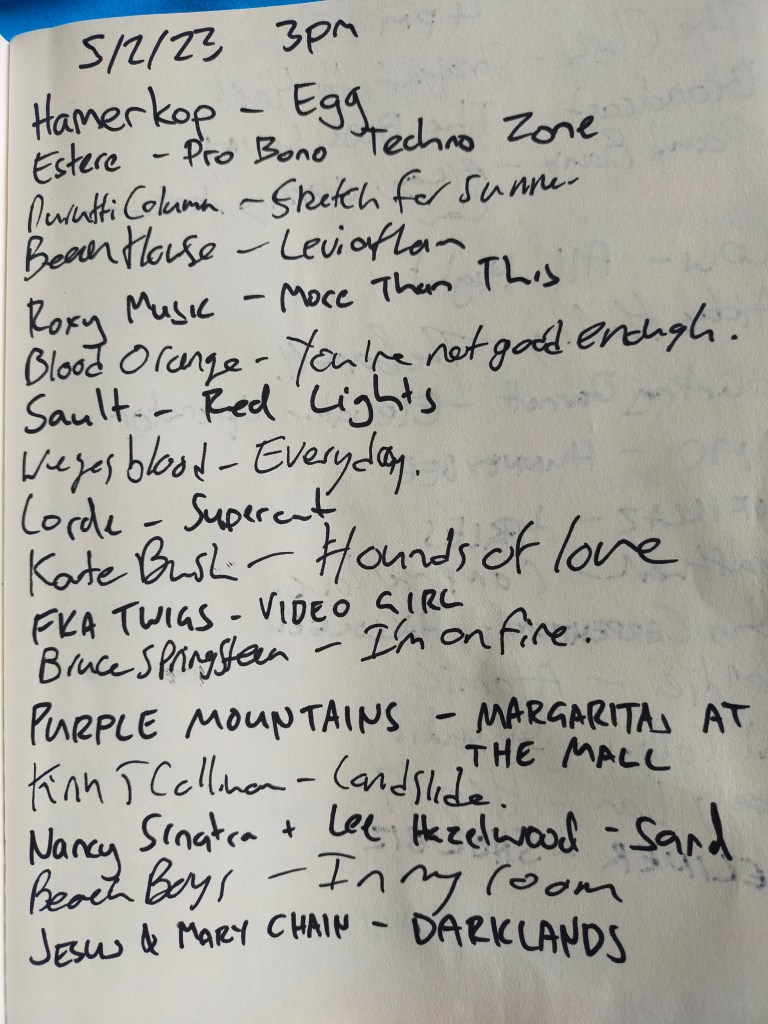 5/2/23 3pm
Hamerkop - Egg
Estere - Pro Bono Techno Zone
Durutti Column - Sketch for Summer
Beach House - Leviathan
Roxy Music - More Than This
Blood Orange - You're not good enough.
Sault - Red Lights
Weyes blood - Everyday.
Lorde - Supercut
Kate Bush - Hounds of love
FKA TWIGS - VIDEO GIRL
Bruce Springsteen - I'm on fire.
PURPLE MOUNTAINS - MARGARITAS AT
THE MALL
Kirin J Callinan - Landslide.
Nancy Sinatra + Lee Hazelwood - Sand
Beach Boys - In my room
JESUS & MARY CHAIN - DARKLANDS